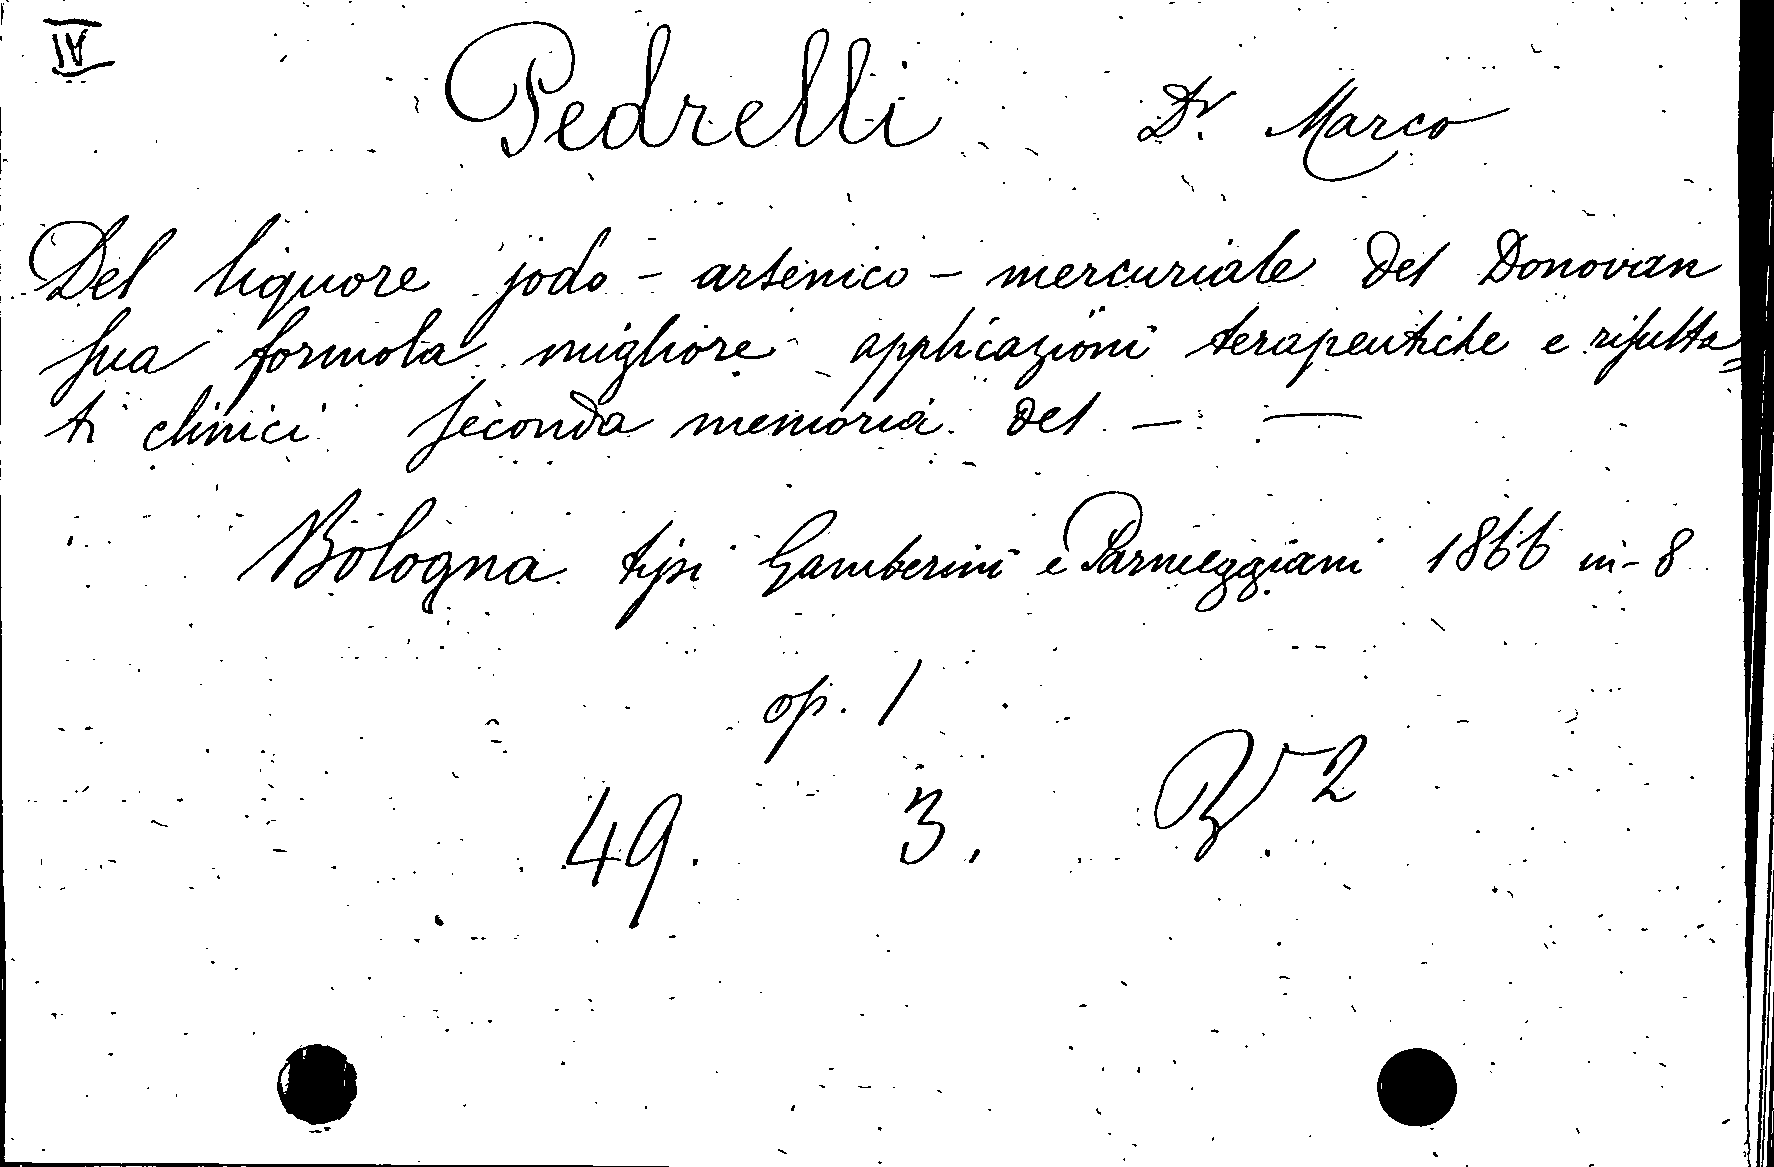 IV
Pedrelli Dr. Marco
Del liquore jodo - arsenico - mercuriale del Donovan
sua formola migliore applicazioni terapeutiche e risulta=
ti clinici seconda memoria del — —
Bologna tipi Gamberini e Parmeggiani 1866 in-8
op. 1
49. 3. 2